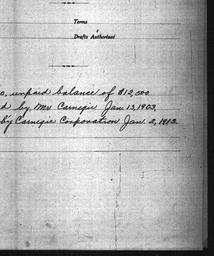 Terms
Drafts Authorized
o, unpaid balance of $12,500
d by Mr Carnegie Jan. 13, 1903,
by Carnegie Corporation Jan. 2, 1913.